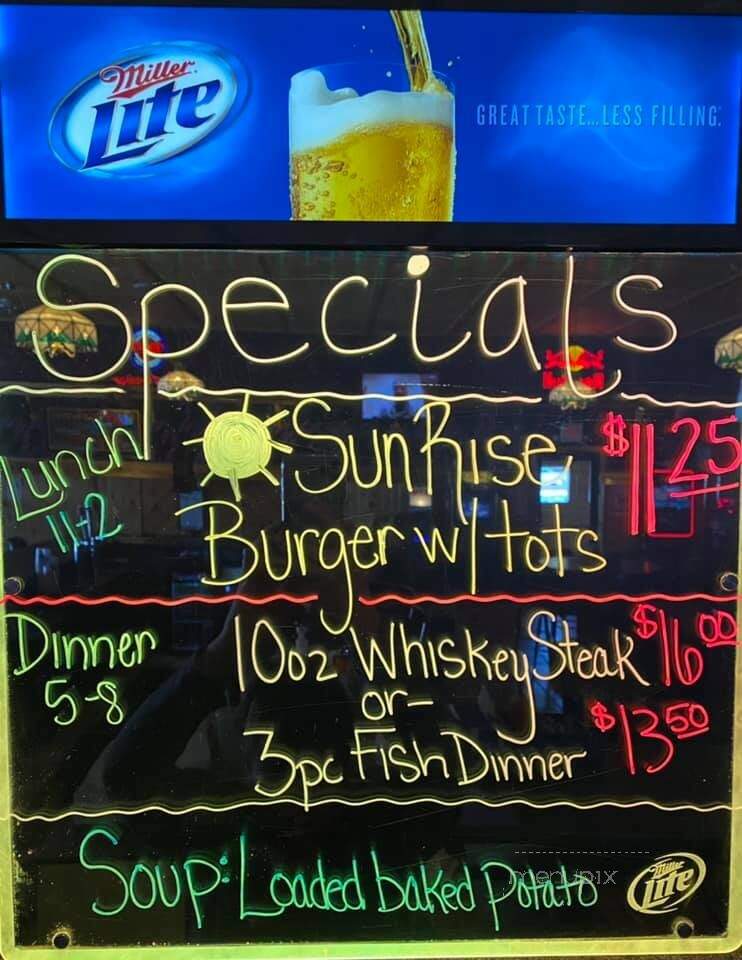 Miller Lite
GREAT TASTE...LESS FILLING.
Specials
Lunch 11-2
SunRise $11.25
Burger w/ tots
Dinner 5-8
10oz Whiskey Steak $16.00
-or-
3pc Fish Dinner $13.50
Soup: Loaded baked Potato
menupix
Miller Lite